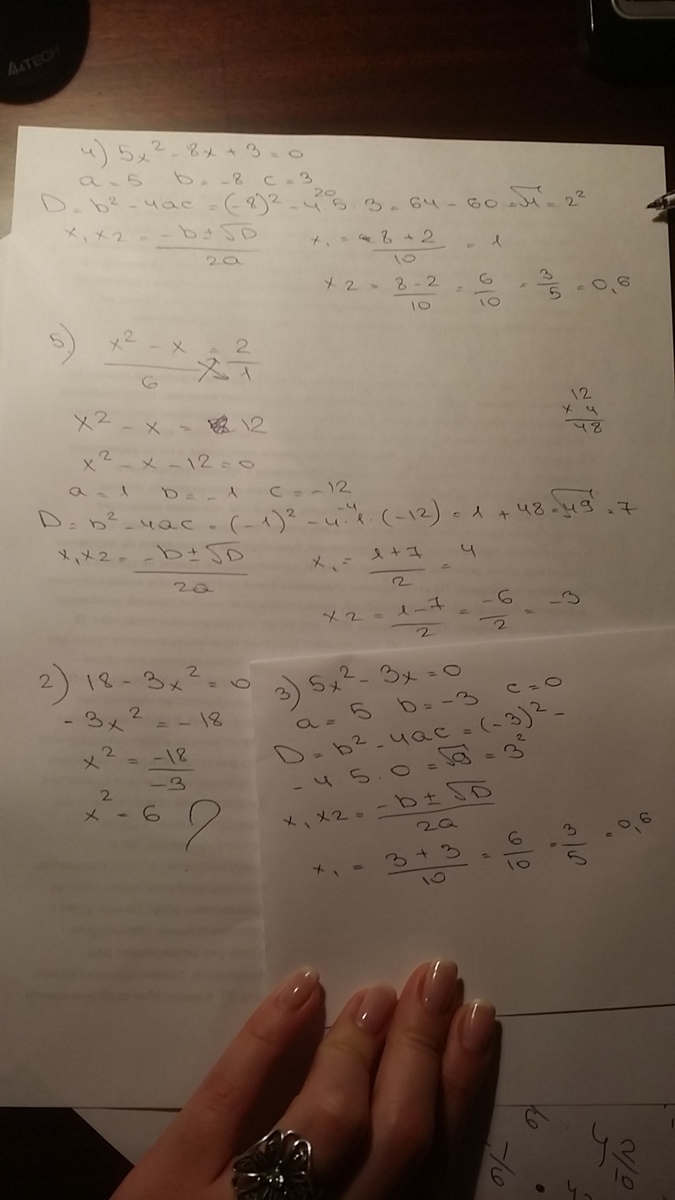 A4TECH
4) 5x² - 8x + 3 = 0
a = 5 b = -8 c = 3
D = b² - 4ac = (-8)² - 4 · 5 · 3 = 64 - 60 = √4 = 2²
20
x₁ x2 = -b ± √D / 2a
x₁ = 8 + 2 / 10 = 1
x2 = 8 - 2 / 10 = 6/10 = 3/5 = 0,6
5) x² - x / 6 = 2/1
x² - x = 12
12
x 4
48
x² - x - 12 = 0
a = 1 b = -1 c = -12
D = b² - 4ac = (-1)² - 4 · 1 · (-12) = 1 + 48 = √49 = 7
-4
x₁ x2 = -b ± √D / 2a
x₁ = 1 + 7 / 2 = 4
x2 = 1 - 7 / 2 = -6/2 = -3
2) 18 - 3x² = 0
- 3x² = - 18
x² = -18/-3
x² - 6 ?
3) 5x² - 3x = 0
a = 5 b = -3 c = 0
D = b² - 4ac = (-3)² -
- 4 · 5 · 0 = √9 = 3²
x₁ x2 = -b ± √D / 2a
x₁ = 3 + 3 / 10 = 6/10 = 3/5 = 0,6